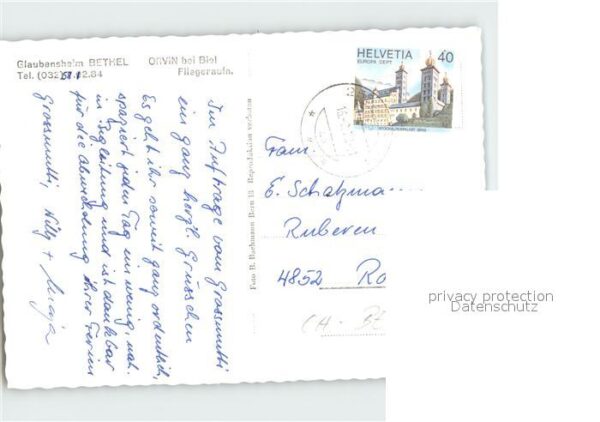 Glaubensheim BETHEL ORVIN bei Biel
Tel. (032) 58.12.84 Fliegeraufn.
Im Auftrage vom Grossmutti
ein ganz herzl. Grüsschen
Es geht ihr soweit ganz ordentlich,
spaziert jeden Tag ein wenig, nat.
in Begleitung und ist dankbar
für die Abwechslung ihrer Ferien
Grossmutti, Willy + Maja
Foto R. Bachmann Bern 18 Reproduktion verboten
HELVETIA 40
EUROPA CEPT
STOCKALPERPALAST BRIG
Fam.
E. Schatzma
Ruberen
4852 Ro
(CH-BE
privacy protection
Datenschutz